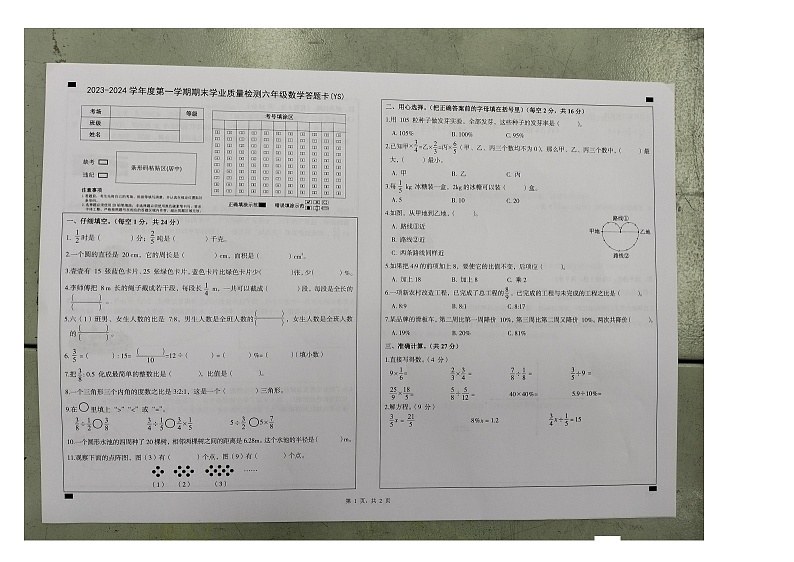 2023-2024 学年度第一学期期末学业质量检测六年级数学答题卡(YS)
考场
等级
班级
姓名
考号填涂区
缺考
违纪
条形码粘贴区(居中)
注意事项
正确填涂示范
错误填涂示范
一、仔细填空。(每空 1 分，共 24 分)
1. 1/2 时是( )分；2/5 吨是( )千克。
2.一个圆的直径是 20 cm，它的周长是( )cm，面积是( )cm²。
3.壹壹有 15 张蓝色卡片，25 张绿色卡片，蓝色卡片比绿色卡片少( )(张，少( )%。
4.李师傅把 8 m 长的绳子裁成若干段，每段长 1/4 m，一共可以截成( )段，每段是全长的
( )/( )。
5.六（1）班男、女生人数的比是 7∶8，男生人数是全班人数的( )/( )，女生人数是全班人数
的( )/( )。
6. 3/5 =( )∶15= ( )/10 =12÷( )=( )%=( )(填小数)
7.把 3/8 ∶0.5 化成最简单的整数比是( )，比值是( )。
8.一个三角形三个内角的度数之比是 3∶2∶1，这是一个( )三角形。
9.在○里填上 “>” “<” 或 “=”。
3/8 ÷ 1/2 ○ 3/8 3/4 ÷ 1/3 ○ 3/4 × 1/5 5÷ 2/3 ○ 5× 7/8
10.一个圆形水池的四周种了 20 棵树，相邻两棵树之间的距离是 6.28m，这个水池的半径是( )m。
11.观察下面的点阵图，图（3）有( )个点，图（9）有( )个点。
……
（1） （2） （3）
二、用心选择。(把正确答案前的字母填在括号里)(每空 2 分，共 16 分)
1.用 105 粒种子做发芽实验，全部发芽，这些种子的发芽率是( )。
A. 105% B. 100% C. 95%
2.已知甲× 1/4 =乙× 2/5 =丙× 6/5 （甲、乙、丙三个数均不为 0)，那么甲、乙、丙三个数中，( )最
大，( )最小。
A. 甲 B. 乙 C. 丙
3.每 1/5 kg 冰糖装一盒，2kg 的冰糖可以装( )盒。
A. 5 B. 10 C. 20
4.如图，从甲地到乙地，( )。
A. 路线①近
B. 路线②近
C. 两条路线同样近
路线①
甲地
乙地
路线②
5.如果把 4∶9 的前项加上 8，要使它的比值不变，后项应( )。
A. 加上 18 B. 加上 8 C. 乘 2
6.一项新农村改造工程，已完成了总工程的 8/9，已完成的工程与未完成的工程之比是( )。
A. 8∶9 B. 8∶1 C. 8∶17
7.某品牌的滑板车，第二周比第一周降价 10%，第三周比第二周又降价 10%，两次共降价( )。
A. 19% B. 20% C. 81%
三、准确计算。(共 27 分)
1.直接写得数。(4 分)
9× 1/6 = 2/3 × 3/4 = 7/8 ÷ 1/8 = 3/5 ÷9 =
25/9 × 18/5 = 5/8 ÷ 5/12 = 40×40%= 5.9÷10%=
2.解方程。(9 分)
3/5 x = 21/5 8%x = 1.2 3/4 x÷ 1/5 =15
第 1 页，共 2 页